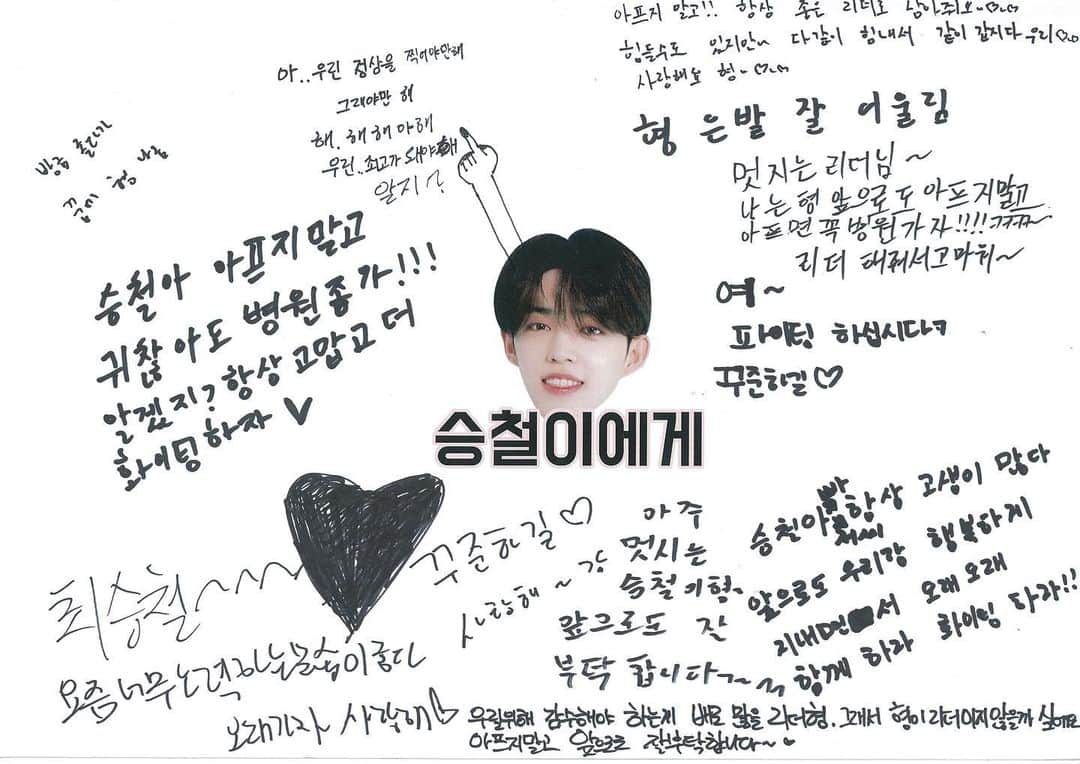 아프지 말고!! 항상 좋은 리더로 남아줘요~♡~♡
힘들수도 있지만~ 다같이 힘내서 같이 갑시다 우리♡~♡
사랑해요 형~♡~♡
아..우린 정상을 찍어야만해
그래야만 해
해. 해 해 아해
우린..최고가 돼야 해
알지?
형 은발 잘 어울림
방금 줄라가
형
멋지는 리더님~
나는 형 앞으로도 아프지말고
아프면 꼭 병원가자!!!! ㅋㅋㅋ~
리더 해줘서고마워~
승철아 아프지말고
귀찮아도 병원좀가!!!
알겠지? 항상 고맙고 더
화이팅하자 ♥
여~
파이팅 하십시다ㅋ
꾸준하길♡
승철이에게
최승철~~~
꾸준하길♡
요즘 너무 노력하는 모습이 좋다
오래가자 사랑해
사랑해~
아주
멋시는
승철이형~
앞으로도 잘
부탁 합니다~~
승철아 항상 고생이 많다
앞으로도 우리랑 행복하게
지내면서 오래오래
함께 하자 화이팅 하자!!
우릴위해 감수해야 하는게 배로 많을 리더형. 그래서 형이 리더이지않을까 싶어요
아프지말고 앞으로도 잘부탁합니다~♥